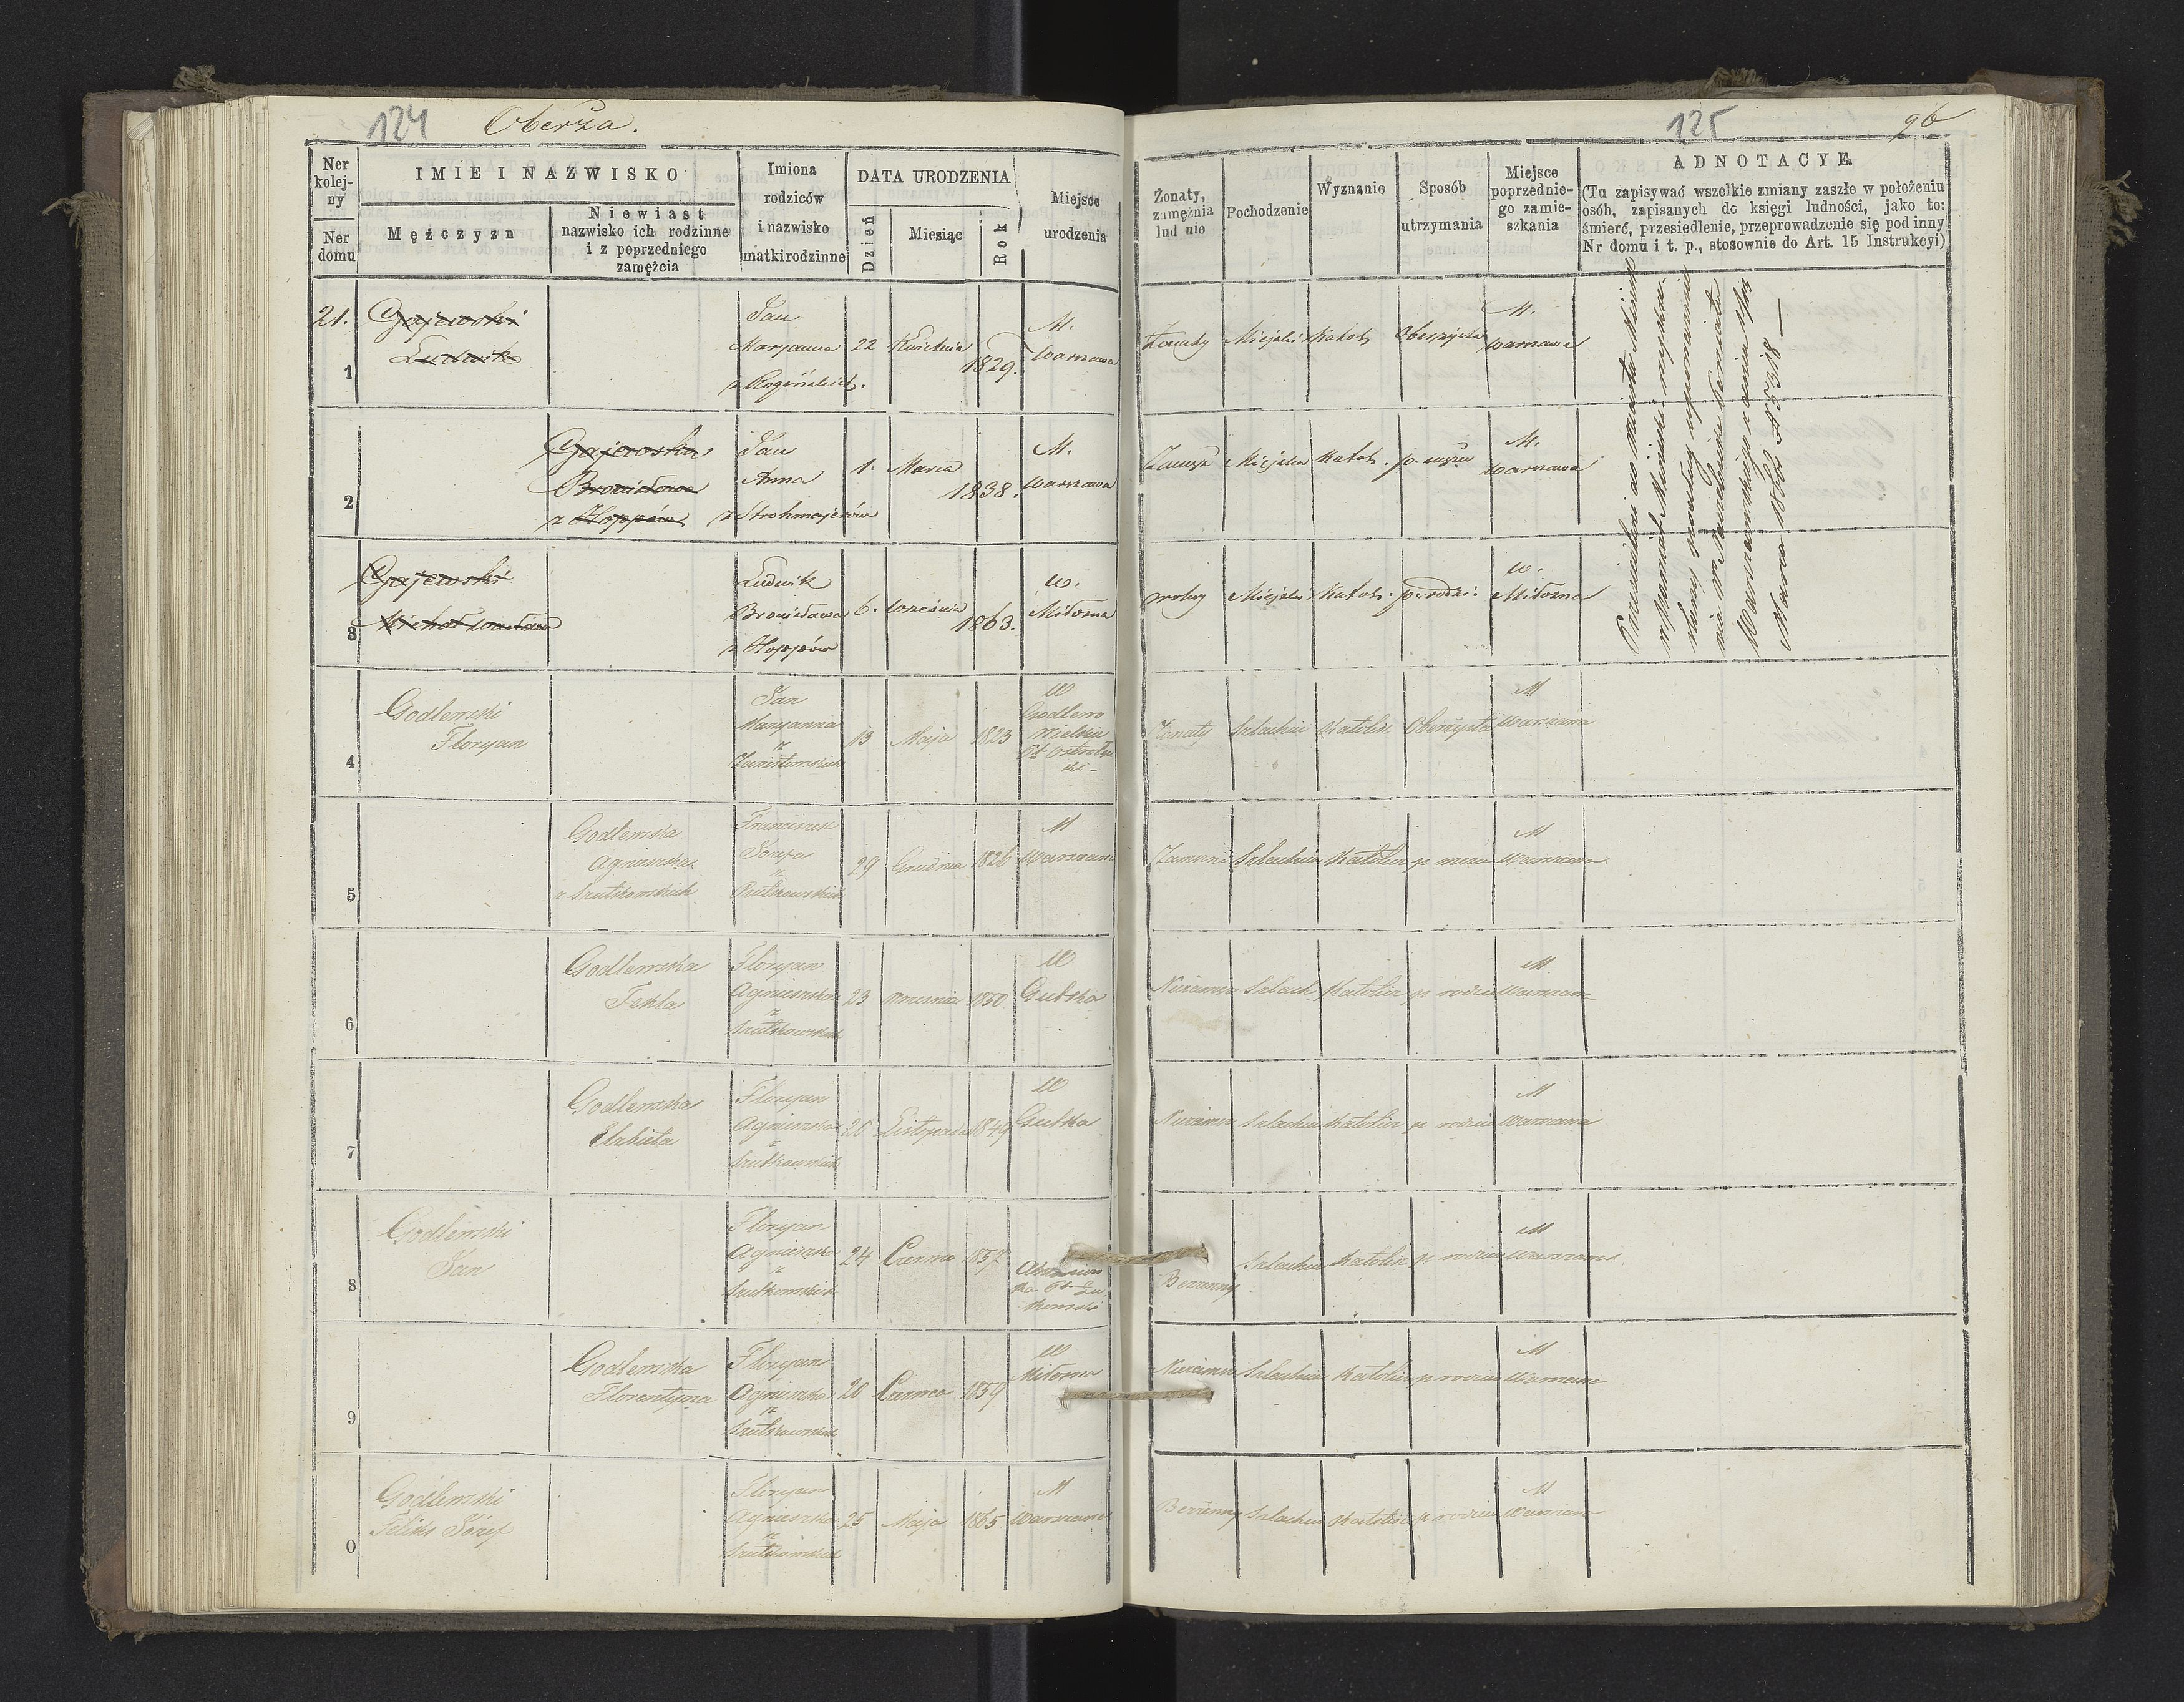 124 Oberża.
125
96
Ner kolejny
Ner domu
IMIE I NAZWISKO
Mężczyzn
Niewiast
nazwisko ich rodzinne
i z poprzedniego
zamęźcia
Imiona
rodziców
i nazwisko
matki rodzinne
DATA URODZENIA
Dzień
Miesiąc
Rok
Miejsce
urodzenia
Żonaty,
zamężnia
lud nie
Pochodzenie
Wyznanie
Sposób
utrzymania
Miejsce
poprzednie-
go zamie-
szkania
ADNOTACYE.
(Tu zapisywać wszelkie zmiany zaszłe w położeniu
osób, zapisanych do księgi ludności, jako to:
śmierć, przesiedlenie, przeprowadzenie się pod inny
Nr domu i t. p., stosownie do Art. 15 Instrukcyi)
21.
1
Gajewski
Ludwik
Jan
Maryanna
z Rogińskich.
22 Kwietnia 1829.
M.
Warszawa
Żonaty Miejski Katol. Oberzysta
M.
Warszawa
2
Gajewska
Bronisława
z Hoppów
Jan
Anna
z Strohmajerów
1. Marca 1838.
M.
Warszawa
Zamęż. Miejska Katol. p. mężu
M.
Warszawa
3
Gajewski
Michał Wacław
Ludwik
Bronisława
z Hoppów
6. Września 1863.
W.
Miłosna
wolny Miejski Katol. p. rodzi.
W.
Miłosna
4
Godlewski
Floryan
Jan
Maryanna
z
13 Maja 1823
W
Godlewo
Wielkie
Pt
Żonaty Szlachic Katolic Oberżysta
M
Warszawa
5
Godlewska
Agnieszka
z Szutkowskich
Franciszek
Józefa
z
Rutkowskich
29 Grudnia 1826
M
Warszawa
Zamężna Szlachcic Katolic p męża
M
Warszawa
6
Godlewska
Tekla
Floryan
Agnieszka
z
Szutkowskich
23 Wrzesnia 1850
W
Gubka
Niezamężna Szlach Katolic p rodzic
M
Warszawa
7
Godlewska
Elzbieta
Floryan
Agnieszka
z
Szutkowskich
20 Listopada 1849
W
Gubka
Niezamężna Szlachcic Katolic p rodzic
M
Warszawa
8
Godlewski
Jan
Floryan
Agnieszka
z
Szutkowskich
24 Czerwca 1857
Bezżenny Szlachcic Katolic p rodzic
M
Warszawa
9
Godlewska
Florentyna
Floryan
Agnieszka
z
Szutkowskich
20 Czerwca 1859
W
Miłosna
Niezamężna Szlachcic Katolic p rodzic
M
Warszawa
0
Godlewski
Feliks Józef
Floryan
Agnieszka
z
Szutkowskich
25 Maja 1865
M
Warszawa
Bezżenny Szlachcic Katolic p rodzic
M
Warszawa